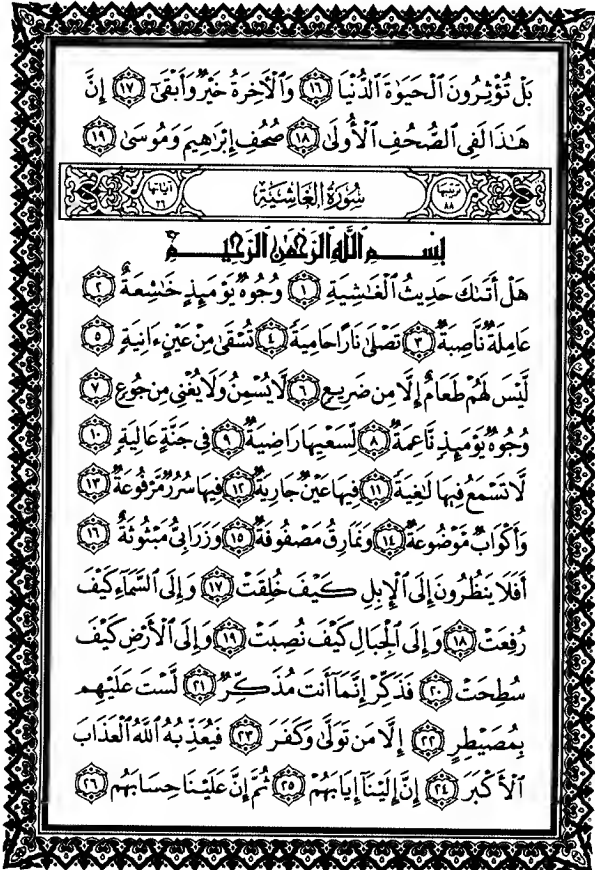 بَلْ تُؤْثِرُونَ ٱلْحَيَوٰةَ ٱلدُّنْيَا ١٦ وَٱلْءَاخِرَةُ خَيْرٌ وَأَبْقَىٰ ١٧ إِنَّ
هَـٰذَا لَفِى ٱلصُّحُفِ ٱلْأُولَىٰ ١٨ صُحُفِ إِبْرَٰهِيمَ وَمُوسَىٰ ١٩
ترتيبها ٨٨ سُورَةُ الغَاشِيَةِ آياتها ٢٦
بِسْمِ ٱللَّهِ ٱلرَّحْمَـٰنِ ٱلرَّحِيمِ
هَلْ أَتَىٰكَ حَدِيثُ ٱلْغَـٰشِيَةِ ١ وُجُوهٌ يَوْمَئِذٍ خَـٰشِعَةٌ ٢
عَامِلَةٌ نَّاصِبَةٌ ٣ تَصْلَىٰ نَارًا حَامِيَةً ٤ تُسْقَىٰ مِنْ عَيْنٍ ءَانِيَةٍ ٥
لَّيْسَ لَهُمْ طَعَامٌ إِلَّا مِن ضَرِيعٍ ٦ لَّا يُسْمِنُ وَلَا يُغْنِى مِن جُوعٍ ٧
وُجُوهٌ يَوْمَئِذٍ نَّاعِمَةٌ ٨ لِّسَعْيِهَا رَاضِيَةٌ ٩ فِى جَنَّةٍ عَالِيَةٍ ١٠
لَّا تَسْمَعُ فِيهَا لَـٰغِيَةً ١١ فِيهَا عَيْنٌ جَارِيَةٌ ١٢ فِيهَا سُرُرٌ مَّرْفُوعَةٌ ١٣
وَأَكْوَابٌ مَّوْضُوعَةٌ ١٤ وَنَمَارِقُ مَصْفُوفَةٌ ١٥ وَزَرَابِىُّ مَبْثُوثَةٌ ١٦
أَفَلَا يَنظُرُونَ إِلَى ٱلْإِبِلِ كَيْفَ خُلِقَتْ ١٧ وَإِلَى ٱلسَّمَآءِ كَيْفَ
رُفِعَتْ ١٨ وَإِلَى ٱلْجِبَالِ كَيْفَ نُصِبَتْ ١٩ وَإِلَى ٱلْأَرْضِ كَيْفَ
سُطِحَتْ ٢٠ فَذَكِّرْ إِنَّمَآ أَنتَ مُذَكِّرٌ ٢١ لَّسْتَ عَلَيْهِم
بِمُصَيْطِرٍ ٢٢ إِلَّا مَن تَوَلَّىٰ وَكَفَرَ ٢٣ فَيُعَذِّبُهُ ٱللَّهُ ٱلْعَذَابَ
ٱلْأَكْبَرَ ٢٤ إِنَّ إِلَيْنَآ إِيَابَهُمْ ٢٥ ثُمَّ إِنَّ عَلَيْنَا حِسَابَهُم ٢٦